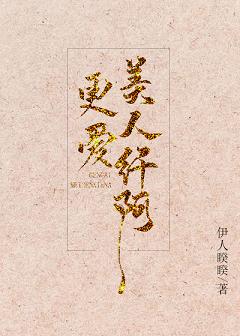 更爱
美人纤阿
GENGAI
MEIRENXIANA
伊人睽睽/著